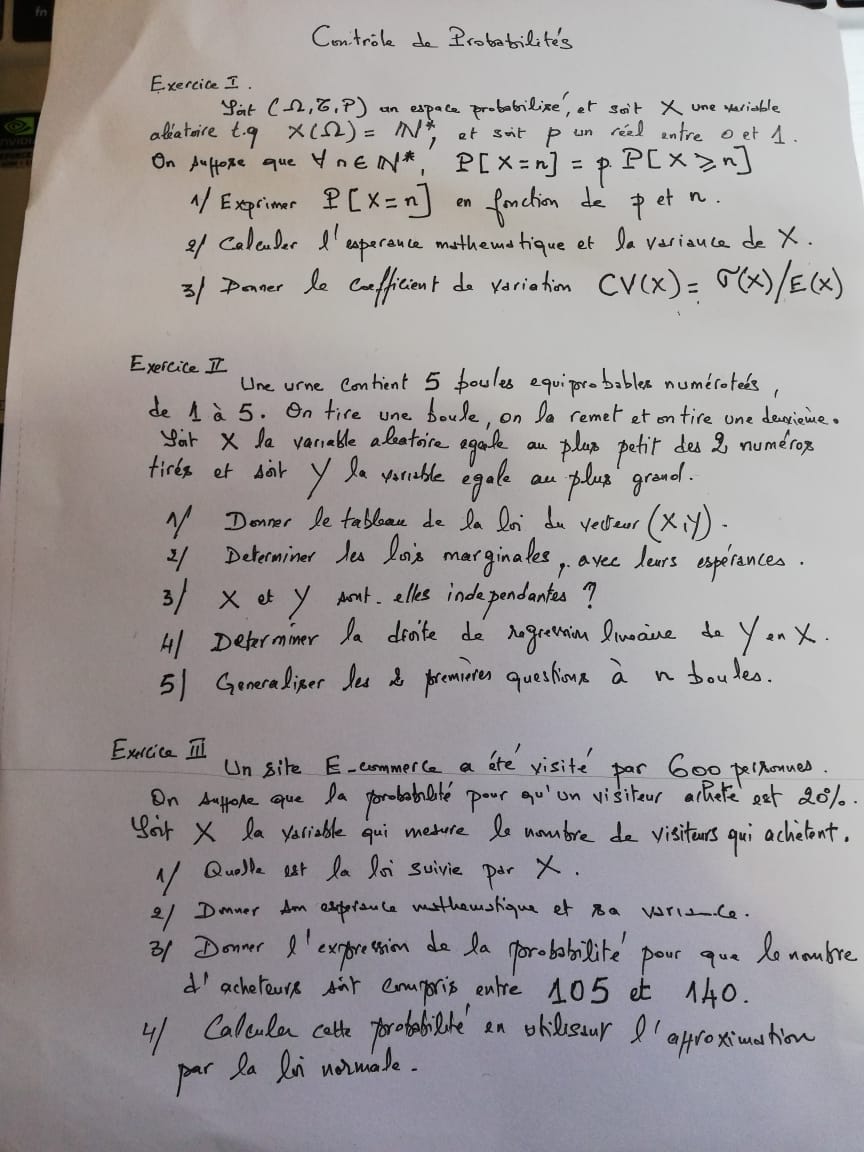 Contrôle de Probabilités
Exercice I.
Soit (Ω, τ, P) un espace probabilisé, et soit X une variable
aléatoire t.q X(Ω) = ℕ*, et soit p un réel entre 0 et 1.
On suppose que ∀ n ∈ ℕ*, P[X=n] = p. P[X ⩾ n]
1/ Exprimer P[X=n] en fonction de p et n.
2/ Calculer l'esperance mathematique et la variance de X.
3/ Donner le coefficient de variation CV(X) = σ(X)/E(X)
Exercice II
Une urne contient 5 boules equiprobables numérotées,
de 1 à 5. On tire une boule, on la remet et on tire une deuxième.
Soit X la variable aleatoire egale au plus petit des 2 numéros
tirés et soit Y la variable egale au plus grand.
1/ Donner le tableau de la loi du vecteur (X,Y).
2/ Determiner les lois marginales, avec leurs espérances.
3/ X et Y sont-elles independantes ?
4/ Determiner la droite de regression lineaire de Y en X.
5/ Generaliser les 2 premières questions à n boules.
Exercice III
Un site E-commerce a été visité par 600 personnes.
On suppose que la probabilité pour qu'un visiteur achète est 20%.
Soit X la variable qui mesure le nombre de visiteurs qui achètent.
1/ Quelle est la loi suivie par X.
2/ Donner son espérance mathematique et sa variance.
3/ Donner l'expression de la probabilité pour que le nombre
d'acheteurs soit compris entre 105 et 140.
4/ Calculer cette probabilité en utilisant l'approximation
par la loi normale.